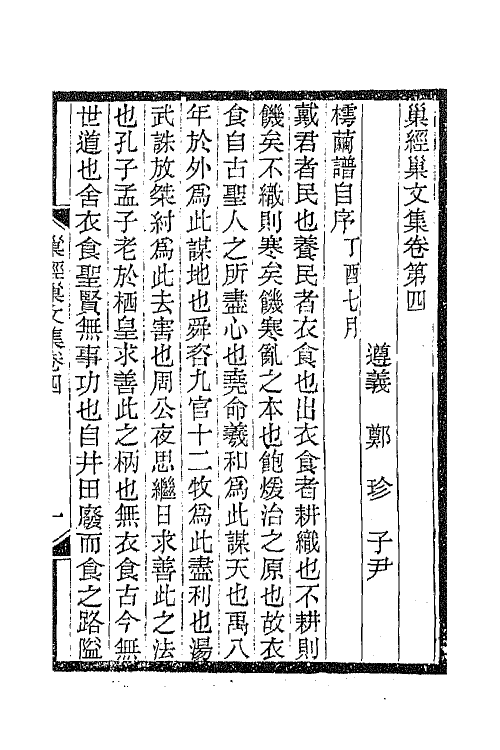 巢經巢文集卷第四
遵義 鄭 珍 子尹
樗繭譜自序丁酉七月
戴君者民也養民者衣食也出衣食者耕織也不耕則
饑矣不織則寒矣饑寒亂之本也飽煖治之原也故衣
食自古聖人之所盡心也堯命羲和爲此謀天也禹八
年於外爲此謀地也舜咨九官十二牧爲此盡利也湯
武誅放桀紂爲此去害也周公夜思繼日求善此之法
也孔子孟子老於栖皇求善此之柄也無衣食古今無
世道也舍衣食聖賢無事功也自井田廢而食之路隘
巢經巢文集卷四
一